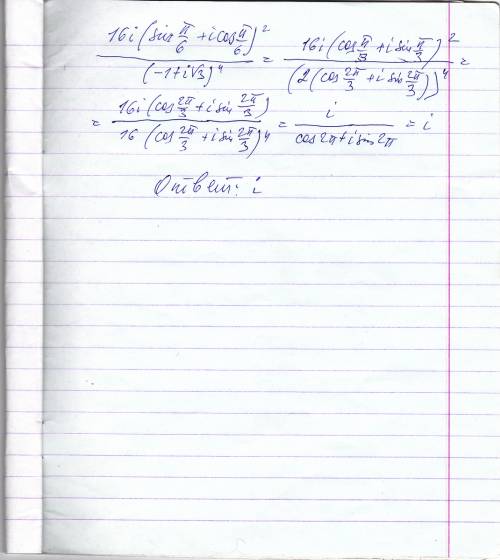 16i(sin π/6 + i cos π/6)² / (-1+i√3)⁴ = 16i(cos π/3 + i sin π/3)² / (2(cos 2π/3 + i sin 2π/3))⁴ =
= 16i(cos 2π/3 + i sin 2π/3) / 16(cos 2π/3 + i sin 2π/3)⁴ = i / cos2π+i sin2π = i
Ответ: i